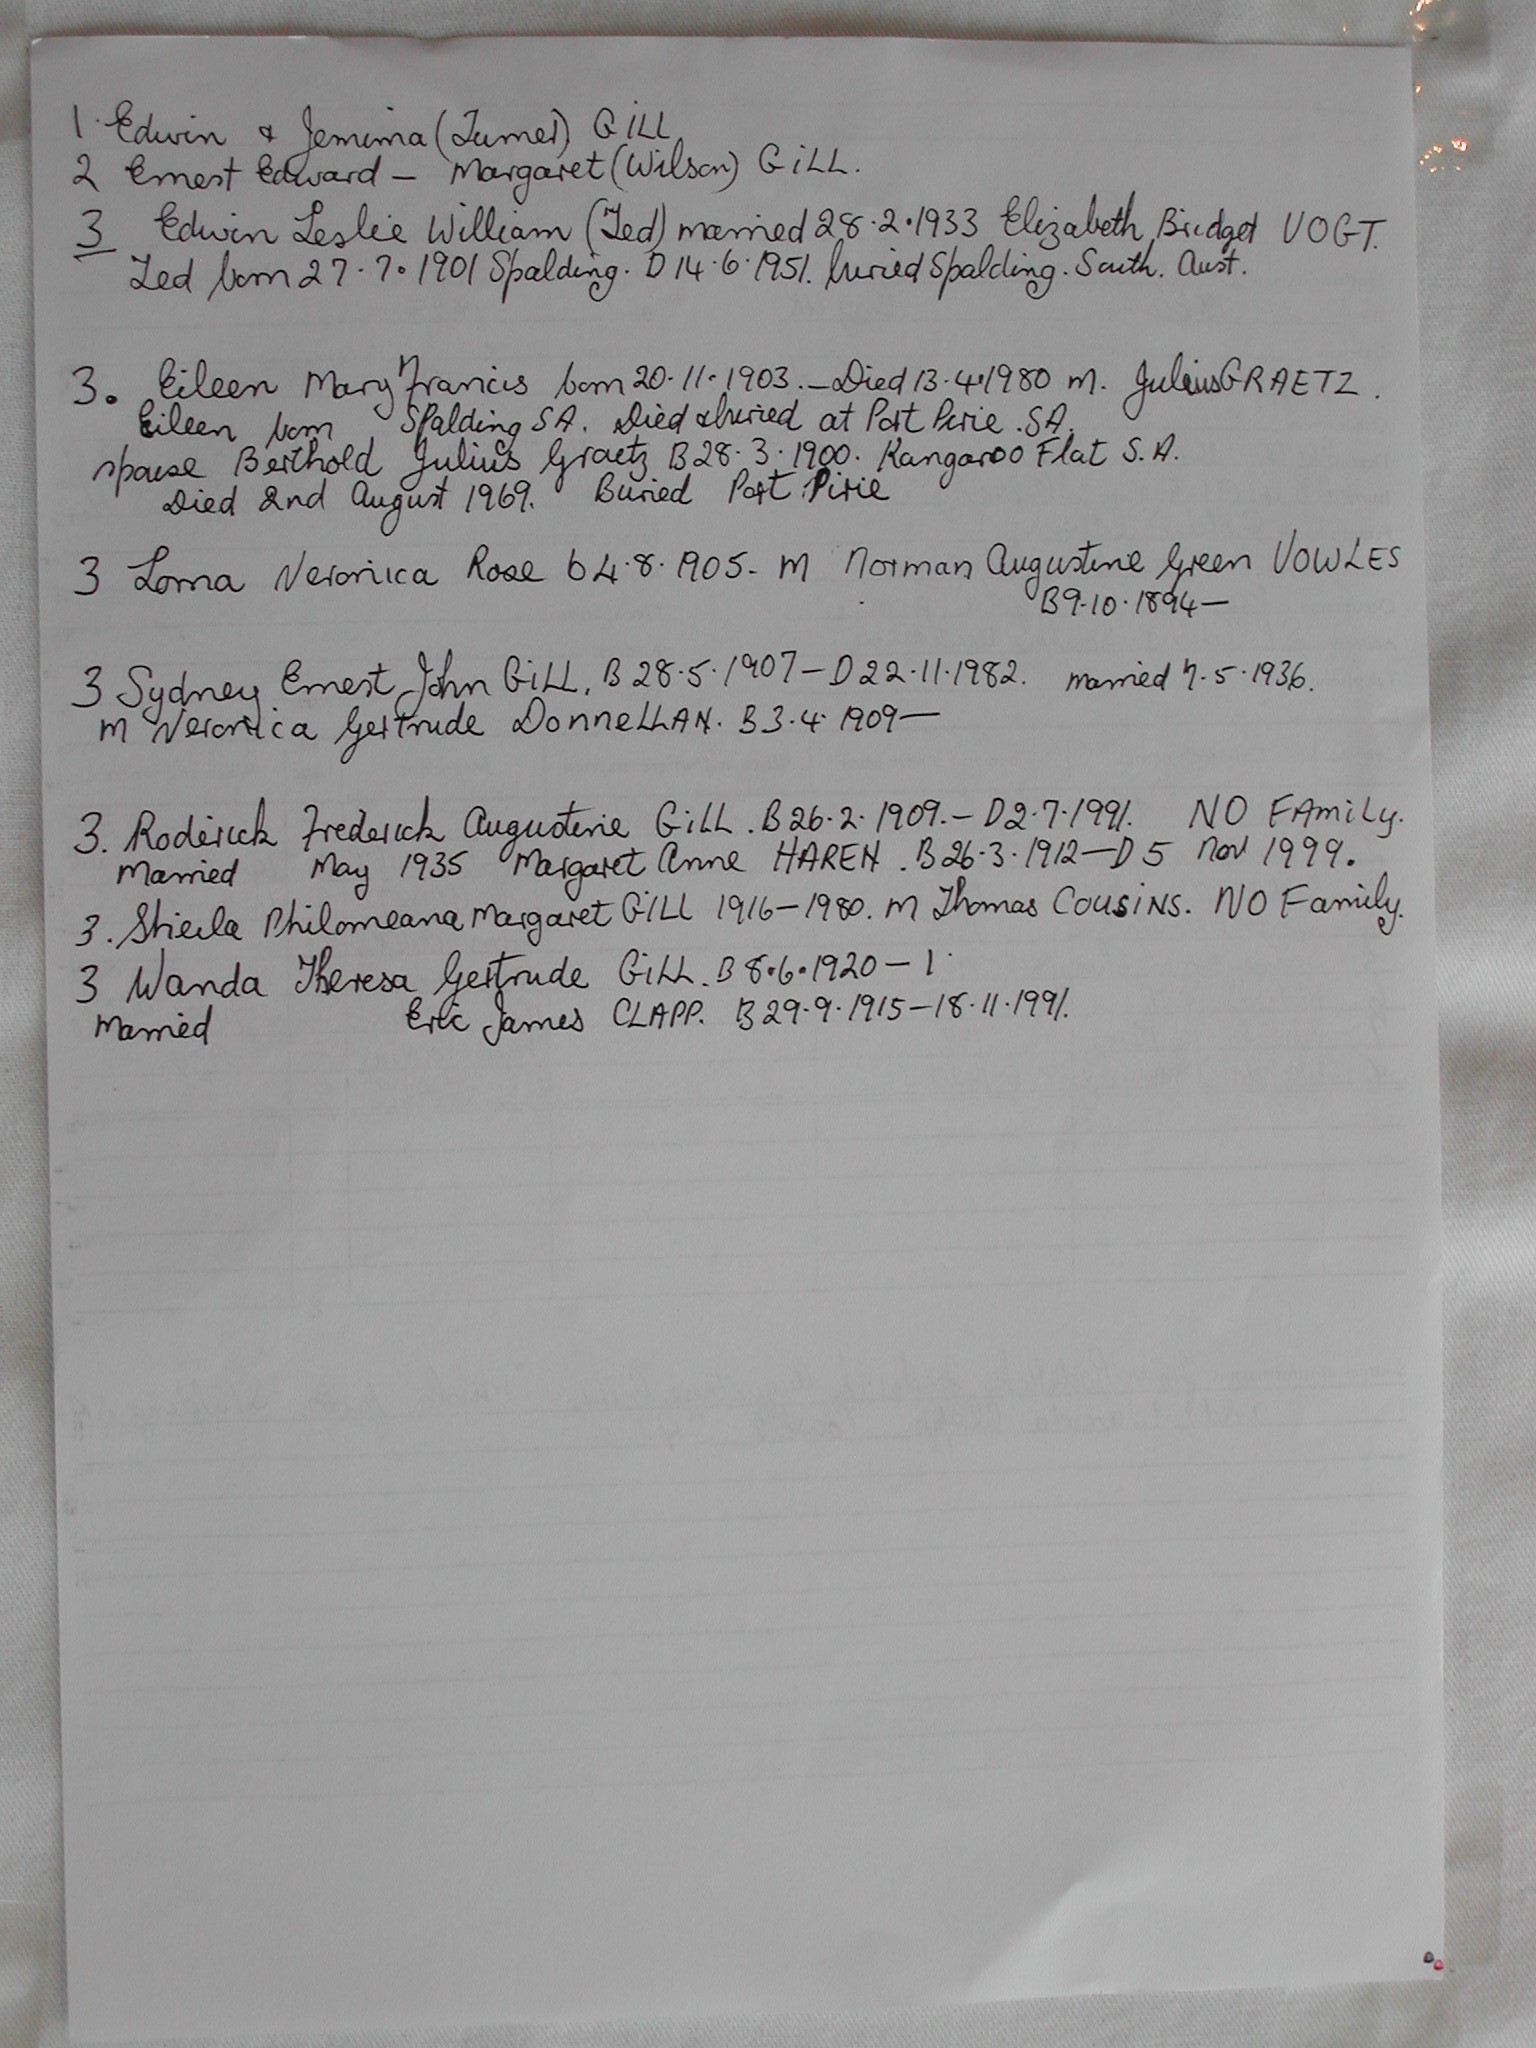 1. Edwin & Jemima (Turner) GILL
2 Ernest Edward – Margaret (Wilson) GILL.
3 Edwin Leslie William (Ted) married 28.2.1933 Elizabeth Bridget VOGT.
Ted born 27.7.1901 Spalding. D 14.6.1951. buried Spalding. South. Aust.
3. Eileen Mary Francis born 20.11.1903. – Died 13.4.1980 m. Julius GRAETZ.
Eileen born Spalding SA. Died & buried at Port Pirie. SA.
spouse Berthold Julius Graetz B 28.3.1900. Kangaroo Flat S.A.
Died 2nd August 1969. Buried Port Pirie
3 Lorna Veronica Rose b 4.8.1905 - m Norman Augustine Green VOWLES
B 9.10.1894 –
3 Sydney Ernest John GILL. B 28.5.1907 – D 22.11.1982. married 7.5.1936.
m Veronica Gertrude DONNELLAN. B 3.4.1909 –
3. Roderick Frederick Augustine GILL. B 26.2.1909. – D 2.7.1991. NO FAMILY.
Married May 1935 Margaret Anne HAREN. B 26.3.1912 – D 5 Nov 1999.
3. Shiela Philomeana Margaret GILL 1916 – 1980. m Thomas COUSINS. NO Family.
3 Wanda Theresa Gertrude GILL. B 8.6.1920 – 1
Married Eric James CLAPP. B 29.9.1915 – 18.11.1991.